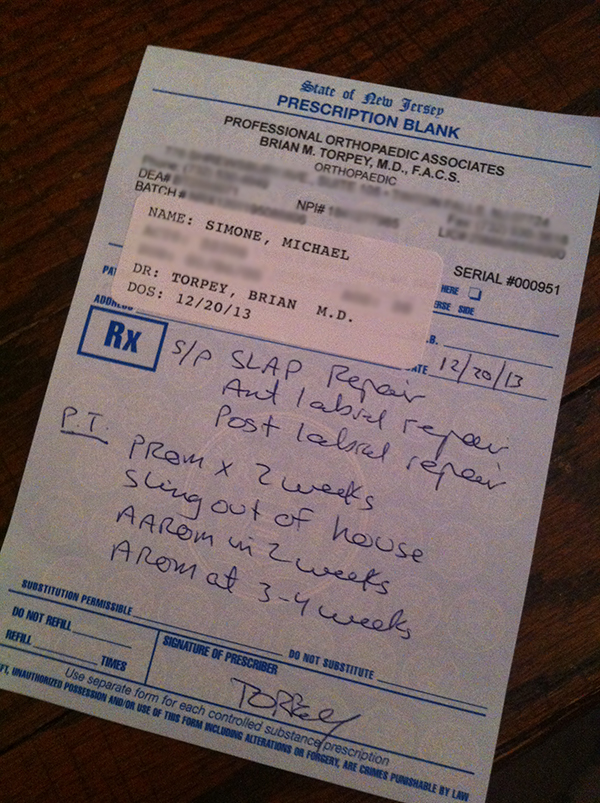 State of New Jersey
PRESCRIPTION BLANK
PROFESSIONAL ORTHOPAEDIC ASSOCIATES
BRIAN M. TORPEY, M.D., F.A.C.S.
ORTHOPAEDIC
DEA#
NPI#
BATCH #
SERIAL #000951
NAME: SIMONE, MICHAEL
DR: TORPEY, BRIAN M.D.
DOS: 12/20/13
HERE
RSE SIDE
ADDRESS
12/20/13
Rx
S/P SLAP Repair
Ant labral repair
Post labral repair
P.T. PROM x 2 weeks
Sling out of house
AAROM in 2 weeks
AROM at 3-4 weeks
SUBSTITUTION PERMISSIBLE
DO NOT SUBSTITUTE
DO NOT REFILL
REFILL TIMES
SIGNATURE OF PRESCRIBER
TORPEY
Use separate form for each controlled substance prescription
FT, UNAUTHORIZED POSSESSION AND/OR USE OF THIS FORM INCLUDING ALTERATIONS OR FORGERY, ARE CRIMES PUNISHABLE BY LAW